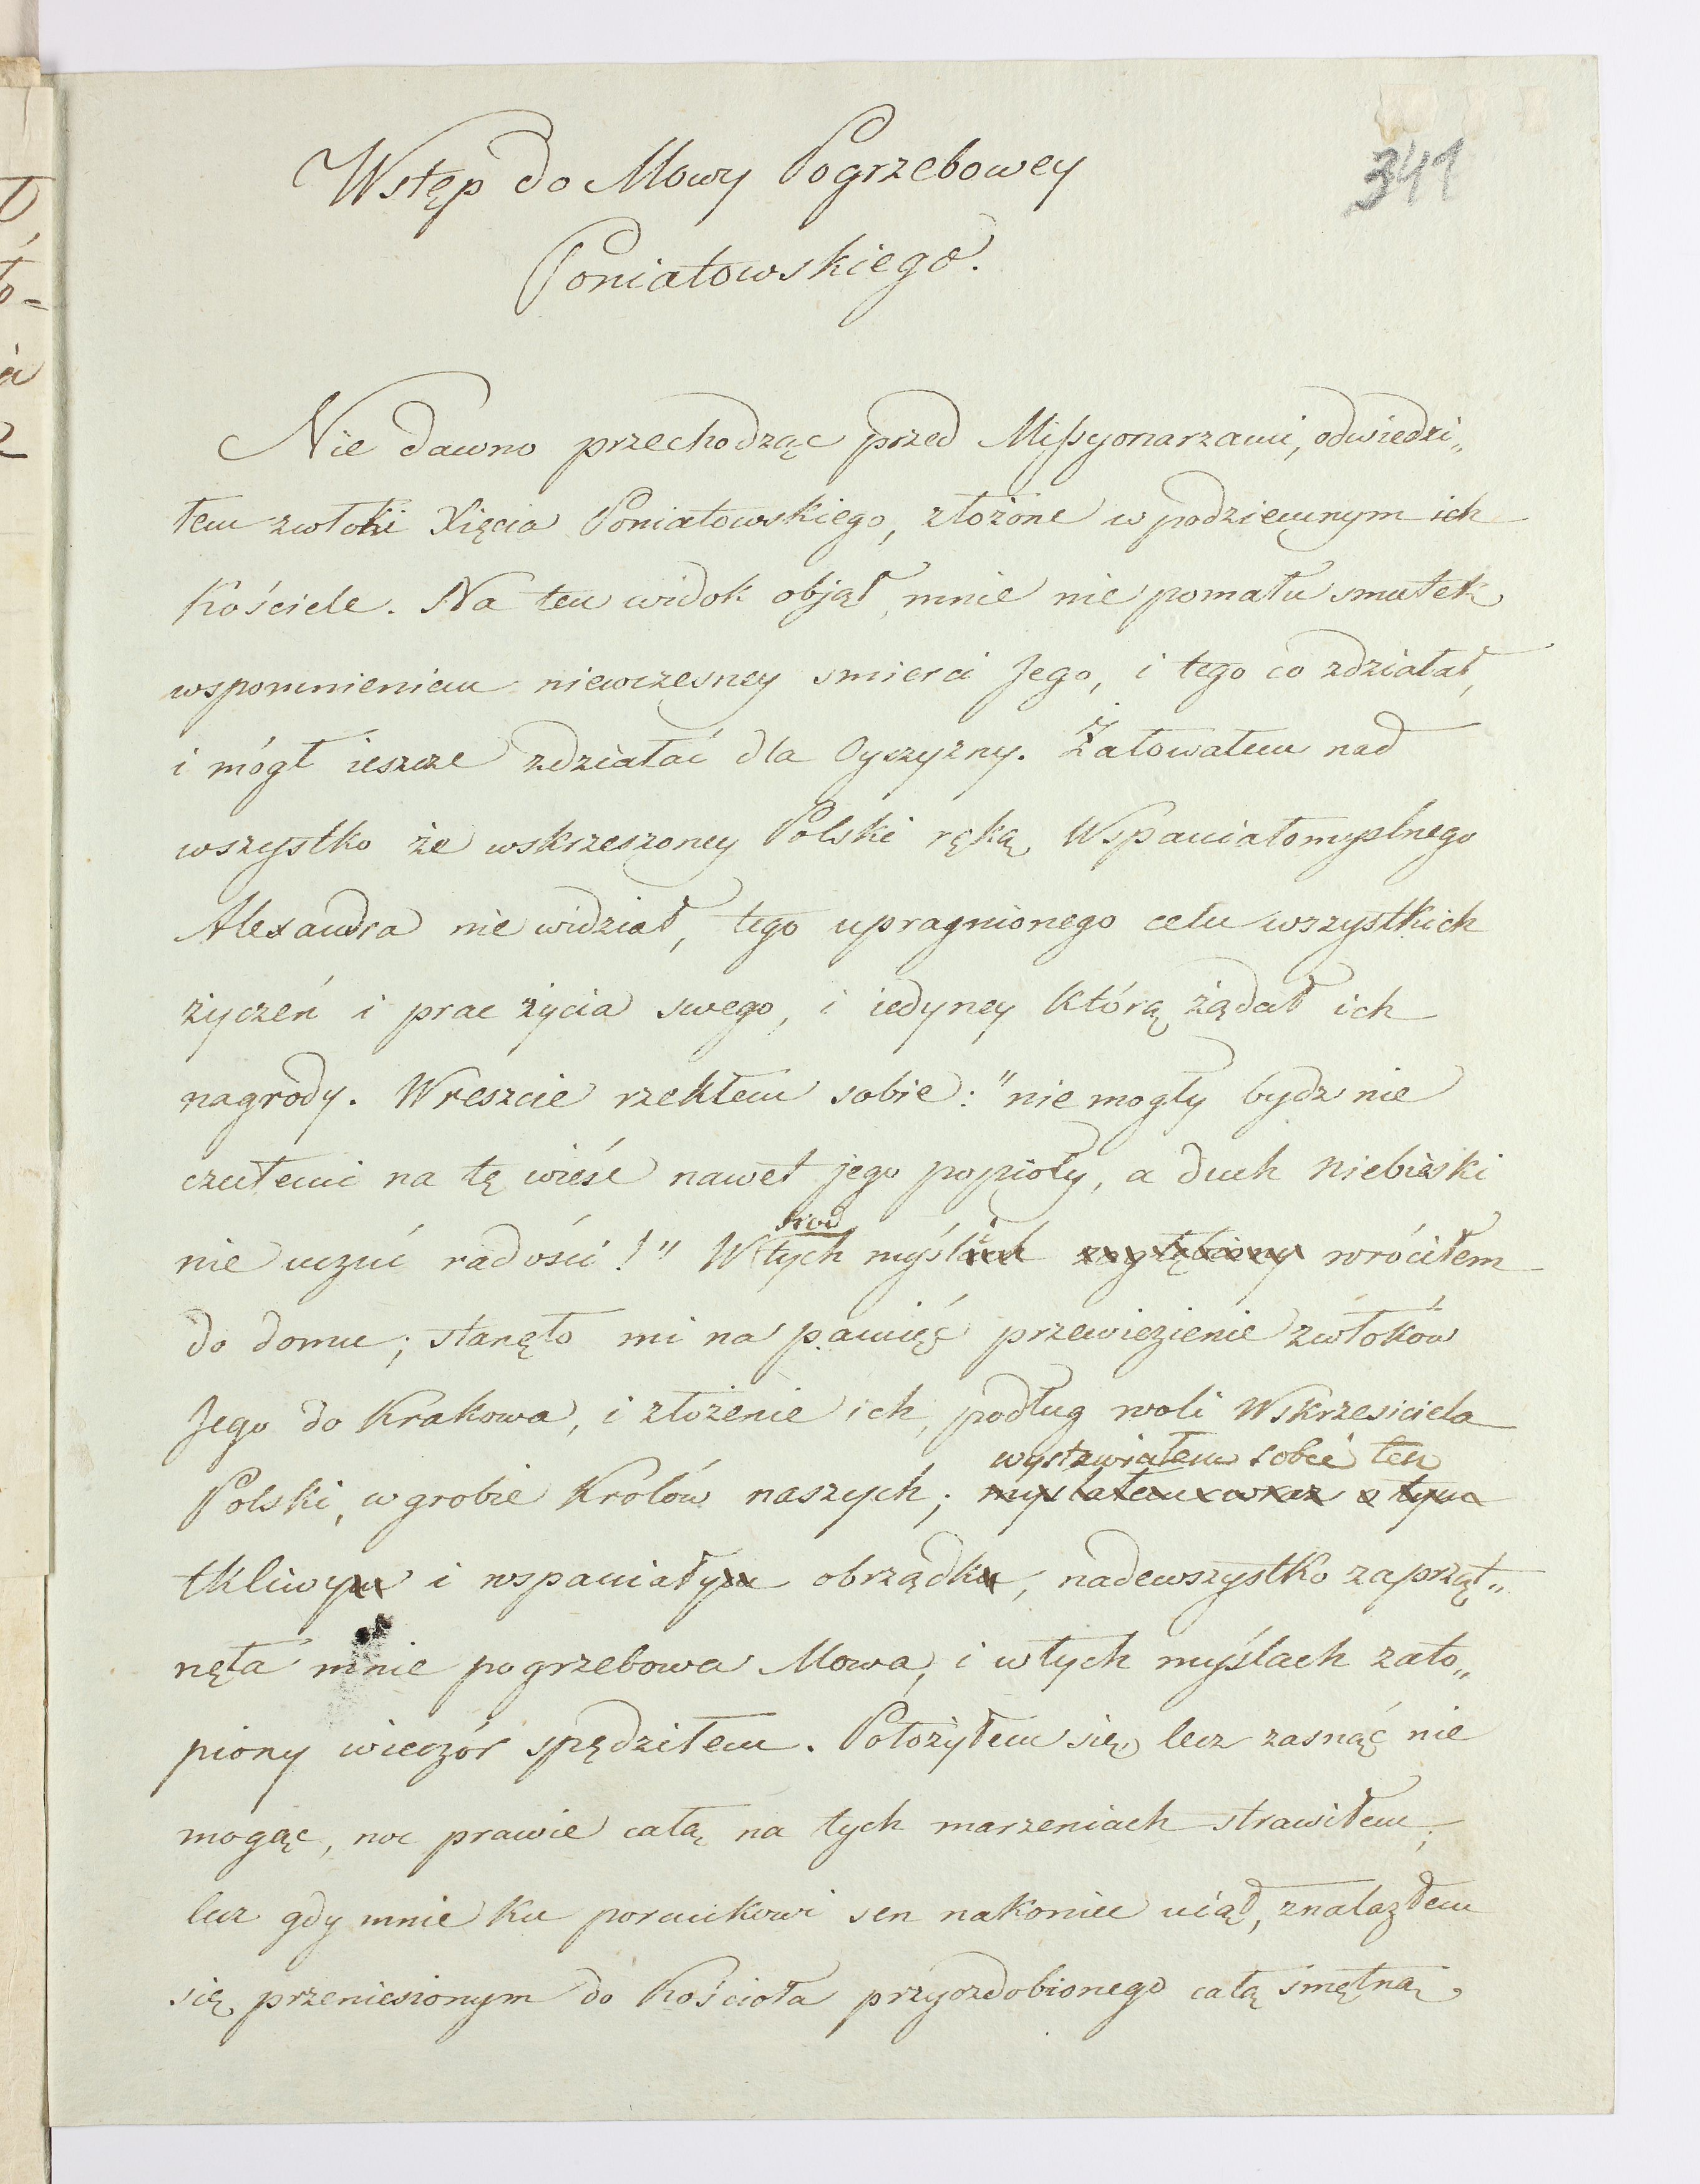 341
Wstęp do Mowy Pogrzebowey
Poniatowskiego.
Nie dawno przechodząc przed Missyonarzami, odwiedzi„
łem zwłoki Xięcia Poniatowskiego, złożone w podziemnym ich
Kościele. Na ten widok objął mnie nie pomału smutek
wspomnieniem niewczesney smierci Jego, i tego co zdziałał,
i mógł ieszcze zdziałać dla Oyczyzny. Żałowałem nad
wszystko że wskrzeszoney Polski ręką Wspaniałomyslnego
Alexandra nie widział, tego upragnionego celu wszystkich
życzeń i prac życia swego, i iedyney którą żądał ich
nagrody. Wreszcie rzekłem sobie: "nie mogły bydz nie
czułemi na tę wieść nawet jego popioły, a duch niebieski
nie uczuć radości!" W
środ
tych myśli zagłębiony wróciłem
do domu; stanęło mi na pamięć przewiezienie zwłoków
Jego do Krakowa, i złożenie ich, podług woli Wskrzesiciela
wystawiałem sobie ten
Polski, w grobie Królów naszych; myslałem wraz o tym
tkliwym i wspaniałym obrządku, nadewszystko zaprząt„
nęła mnie pogrzebowa Mowa, i w tych myślach zato„
piony wieczór spędziłem. Położyłem się, lecz zasnąć nie
mogąc, noc prawie całą na tych marzeniach strawiłem;
lecz gdy mnie ku porankowi sen nakoniec uiął, znalazłem
się przeniesionym do Kościoła przyozdobionego całą smętną